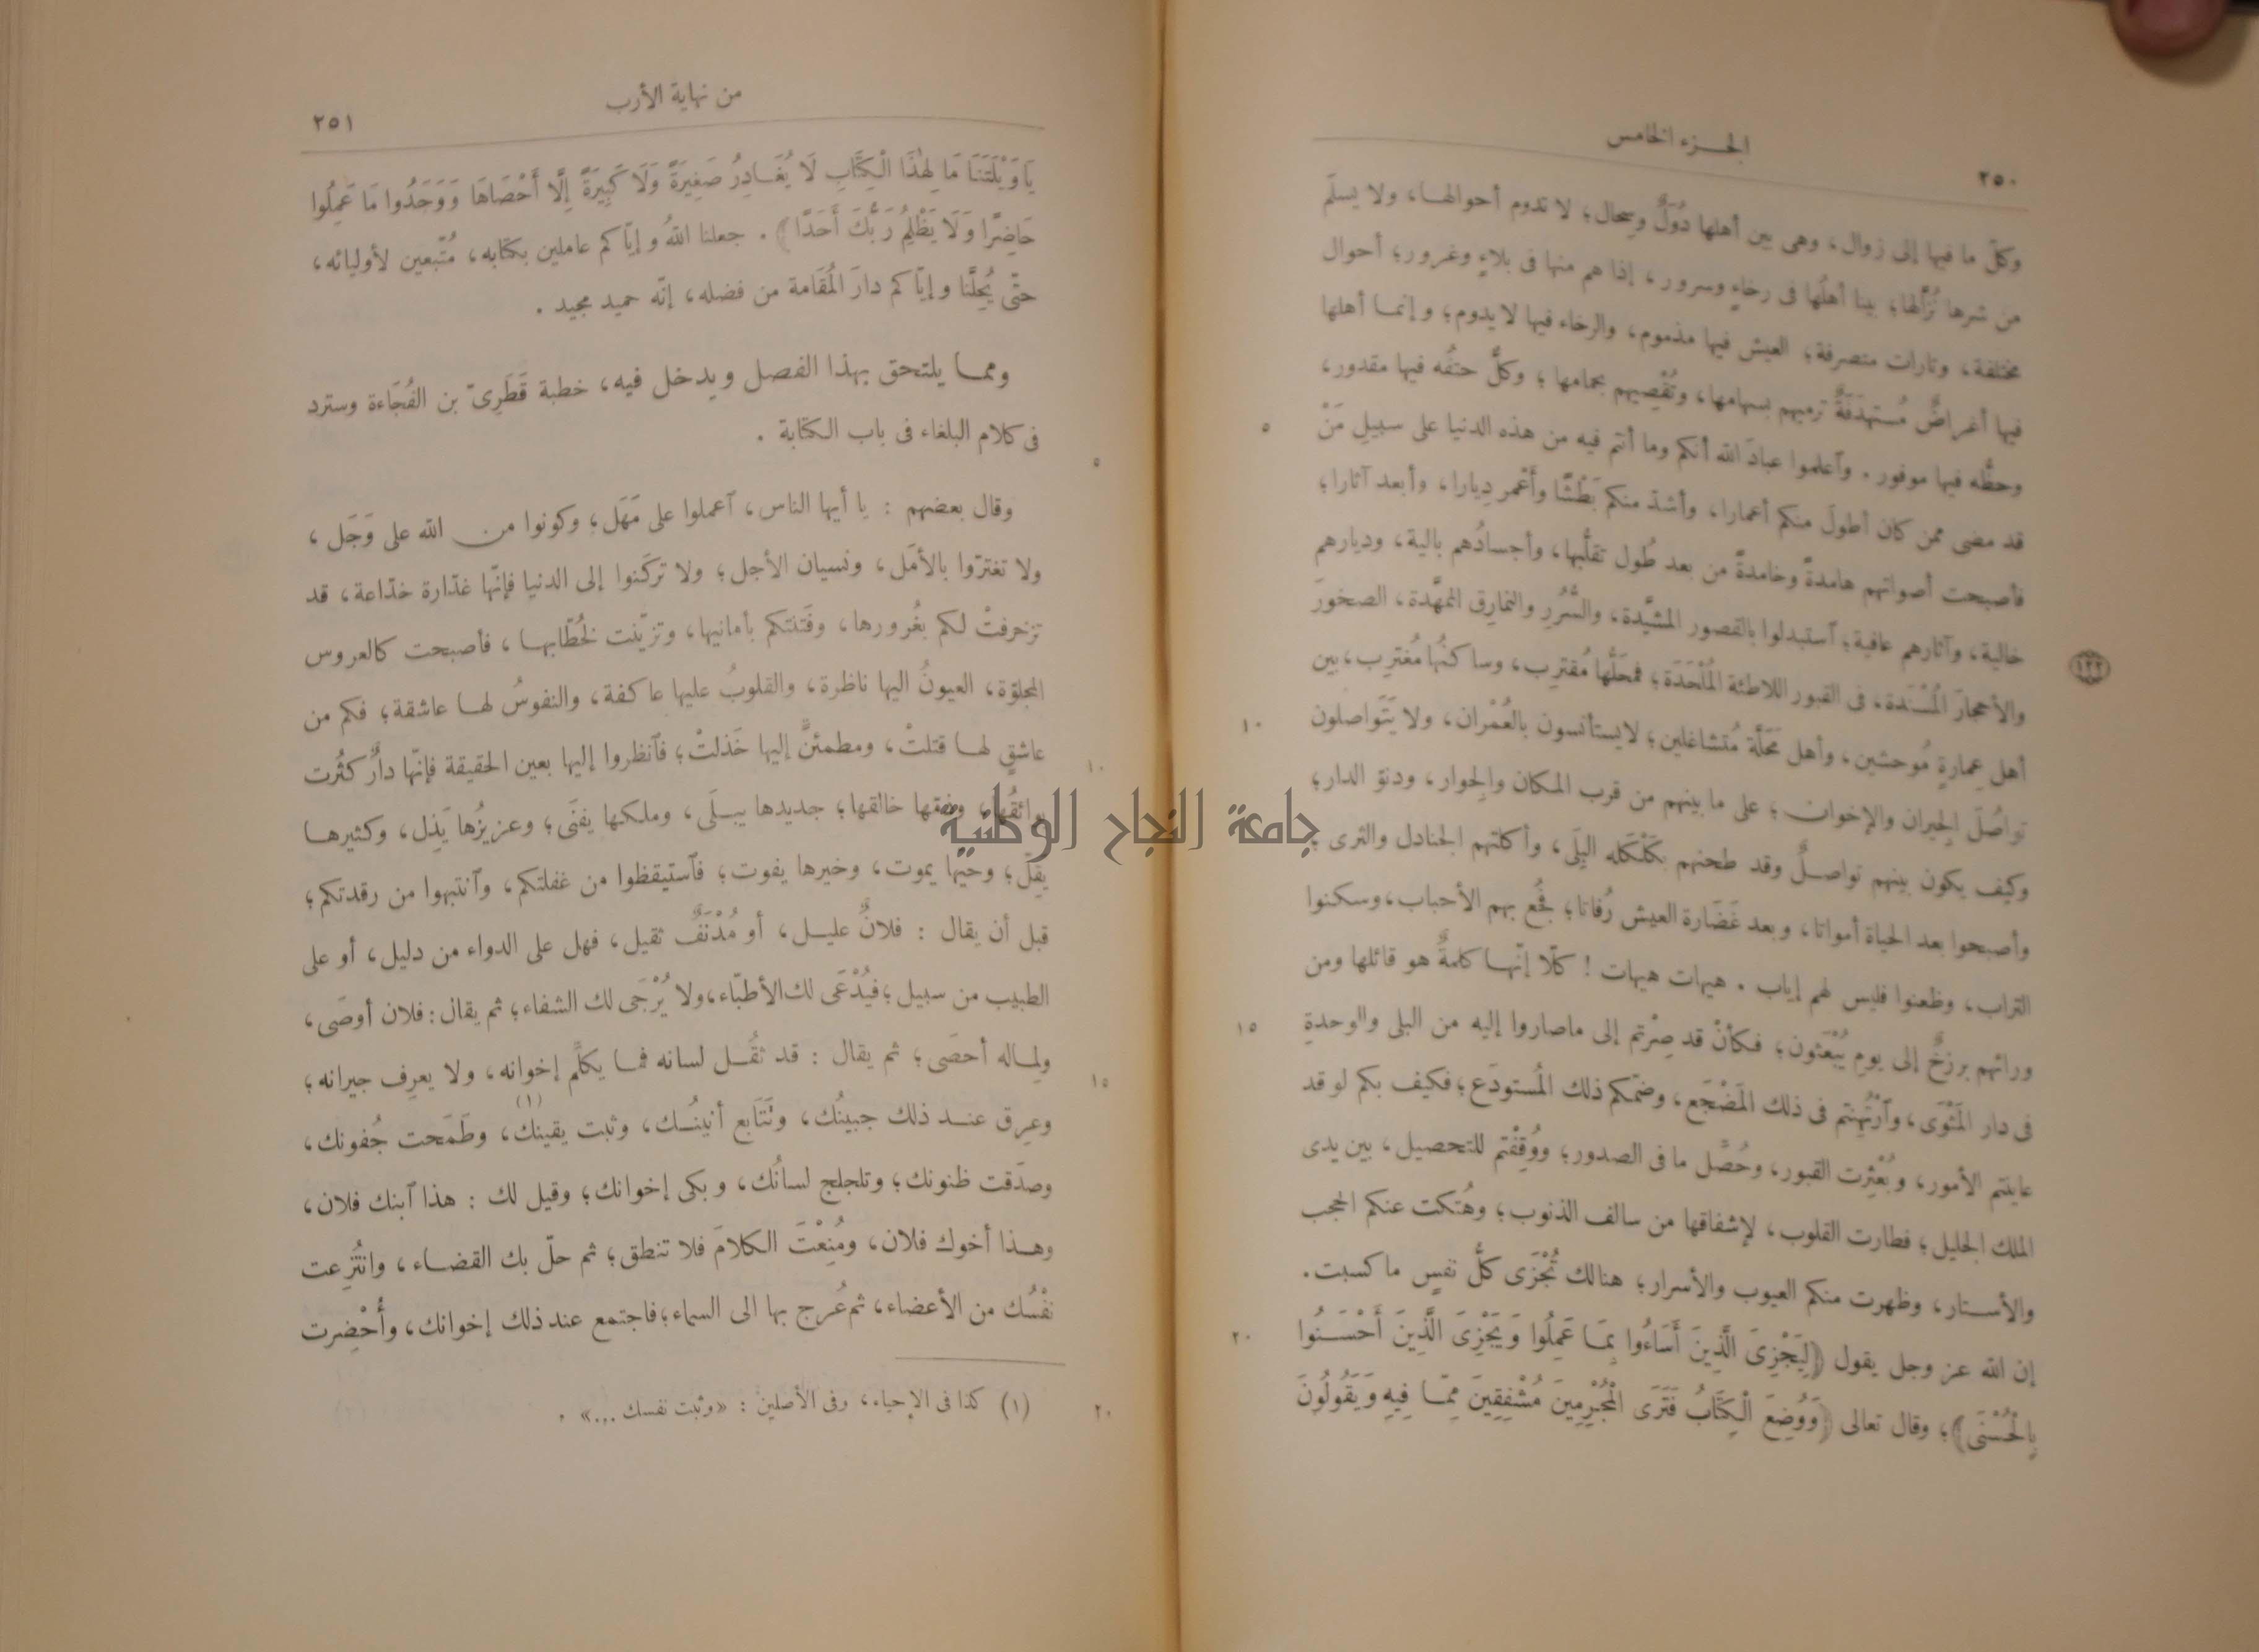 ٢٥٠
الجزء الخامس
وكلّ ما فيها إلى زوال، وهى بين أهلها دُوَلٌ وسِجال؛ لا تدوم أحوالها، ولا يسلَم
من شرها نُزَّالها؛ بينا أهلُها فى رخاءٍ وسرور، إذا هم منها فى بلاءٍ وغرور؛ أحوال
مختلفة، وتارات متصرفة؛ العيش فيها مذموم، والرخاء فيها لا يدوم؛ وإنما أهلها
فيها أغراضٌ مُستهدَفَةٌ ترميهم بسهامها، وتُقْصِيهم بحمامها؛ وكلٌّ حتفُه فيها مقدور،
وحظُّه فيها موفور. وآعلموا عبادَ الله أنكم وما أنتم فيه من هذه الدنيا على سبيلِ مَنْ
٥
قد مضى ممن كان أطولَ منكم أعمارا، وأشدّ منكم بَطْشًا وأَعْمر دِيارا، وأبعد آثارا؛
فأصبحت أصواتهم هامدةً وخامدةً من بعد طُول تقلُّبها، وأجسادُهم بالية، وديارهم
خالية، وآثارهم عافية؛ آستبدلوا بالقصور المشيَّدة، والسُّرُرِ والنمارِق الممهَّدة، الصخورَ
(١٢٢)
والأحجارَ المُسْنَدة، فى القبور اللاطئة المُلْحَدَة؛ فمَحَلُّها مُقترِب، وساكنُها مُغترِب، بين
أهلِ عِمارةٍ مُوحشين، وأهل مَحَلَّة مُتشاغلين؛ لا يستأنسون بالعُمْران، ولا يَتَواصلون
١٠
تواصُلَ الجيران والإخوان؛ على ما بينهم من قرب المكان والجوار، ودنوّ الدار؛
وكيف يكون بينهم تواصلٌ وقد طحنهم بكَلْكَله البِلَى، وأكلتهم الجنادل والثرى؛
وأصبحوا بعد الحياة أمواتا، وبعد غَضَارة العيش رُفاتا؛ فُجِع بهم الأحباب، وسكنوا
التراب، وظعنوا فليس لهم إياب. هيهات هيهات! كلّا إنّها كلمةٌ هو قائلها ومن
ورائهم برزخٌ إلى يومِ يُبْعَثون؛ فكأنْ قد صِرْتم إلى ما صاروا إليه من البلى والوحدةِ
١٥
فى دار المَثْوَى، وآرْتُهِنتم فى ذلك المَضْجَع، وضمّكم ذلك المُستودَع؛ فكيف بكم لو قد
عاينتم الأمور، وبُعْثِرت القبور، وحُصِّل ما فى الصدور؛ ووُقِفْتم للتحصيل، بين يدى
الملك الجليل؛ فطارت القلوب، لإشفاقها من سالف الذنوب؛ وهُتكت عنكم الحجب
والأستار، وظهرت منكم العيوب والأسرار؛ هنالك تُجْزَى كلُّ نفسٍ ما كسبت.
إن الله عز وجل يقول ﴿لِيَجْزِىَ الَّذِينَ أَسَاءُوا بِمَا عَمِلُوا وَيَجْزِىَ الَّذِينَ أَحْسَنُوا
٢٠
بِالْحُسْنَى﴾؛ وقال تعالى ﴿وَوُضِعَ الْكِتَابُ فَتَرَى الْمُجْرِمِينَ مُشْفِقِينَ مِمَّا فِيهِ وَيَقُولُونَ
من نهاية الأرب
٢٥١
يَا وَيْلَتَنَا مَا لِهٰذَا الْكِتَابِ لَا يُغَادِرُ صَغِيرَةً وَلَا كَبِيرَةً إِلَّا أَحْصَاهَا وَوَجَدُوا مَا عَمِلُوا
حَاضِرًا وَلَا يَظْلِمُ رَبُّكَ أَحَدًا﴾. جعلنا اللهُ وإيّاكم عاملين بكتابه، مُتّبعين لأوليائه،
حتّى يُحِلَّنا وإيّاكم دارَ المُقَامة من فضله، إنّه حميد مجيد.
ومما يلتحق بهذا الفصل ويدخل فيه، خطبة قَطَرِىّ بن الفُجَاءة وسترد
فى كلام البلغاء فى باب الكتابة.
٥
وقال بعضهم : يا أيها الناس، آعملوا على مَهَل؛ وكونوا من الله على وَجَل،
ولا تغترّوا بالأمَل، ونسيان الأجل؛ ولا تركَنوا إلى الدنيا فإنّها غدّارة خدّاعة، قد
تزخرفتْ لكم بغُرورها، وفَتَنتكم بأمانيها، وتزيّنت لخُطّابها، فأصبحت كالعروس
المجلوّة، العيونُ اليها ناظرة، والقلوبُ عليها عاكفة، والنفوسُ لها عاشقة؛ فكم من
عاشقٍ لها قتلتْ، ومطمئنٍّ إليها خَذلتْ؛ فآنظروا إليها بعين الحقيقة فإنّها دارٌ كثُرت
١٠
بوائقُها، وذمّها خالقها؛ جديدها يبلَى، وملكها يفنَى؛ وعزيزُها يَذِل، وكثيرها
يقِلّ؛ وحيّها يموت، وخيرها يفوت؛ فآستيقظوا من غفلتكم، وآنتبهوا من رقدتكم؛
قبل أن يقال : فلانٌ عليل، أو مُدْنَفٌ ثقيل، فهل على الدواء من دليل، أو على
الطبيب من سبيل؛ فيُدْعَى لك الأطبّاء، ولا يُرْجَى لك الشفاء؛ ثم يقال : فلان أوصَى،
ولماله أحصَى؛ ثم يقال : قد ثَقُل لسانه فما يكلِّم إخوانه، ولا يعرِف جيرانه؛
١٥
وعرِق عند ذلك جبينُك، وتَتَابع أنينُك، وثبت يقينك(١)، وطَمَحت جُفونك،
وصدَقت ظنونك؛ وتلجلج لسانُك، وبكى إخوانك؛ وقيل لك : هذا آبنك فلان،
وهذا أخوك فلان، ومُنِعْتَ الكلامَ فلا تنطق؛ ثم حلّ بك القضاء، وانتُزِعت
نفْسُك من الأعضاء، ثم عُرج بها الى السماء؛ فاجتمع عند ذلك إخوانك، وأُحْضِرت
(١) كذا فى الإحياء، وفى الأصلين : «وثبت نفسك ...».
٢٠
جامعة النجاح الوطنية